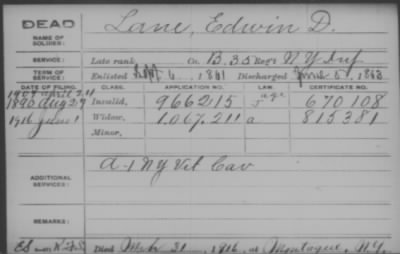 DEAD
NAME OF SOLDIER: Lane, Edwin D.
SERVICE: Late rank, Co. B, 35 Reg't N Y Inf
TERM OF SERVICE: Enlisted 6, 1861 Discharged June 5, 1863
DATE OF FILING. CLASS. APPLICATION NO. LAW. CERTIFICATE NO.
1907 April 21 age
1890 Aug 29 Invalid, 966215 J 670108
1916 June 1 Widow, 1.067.211 a 815381
Minor,
ADDITIONAL SERVICES: A-1 NY Vet Cav
REMARKS:
Died Mch 31, 1916, at Montague, N.Y.